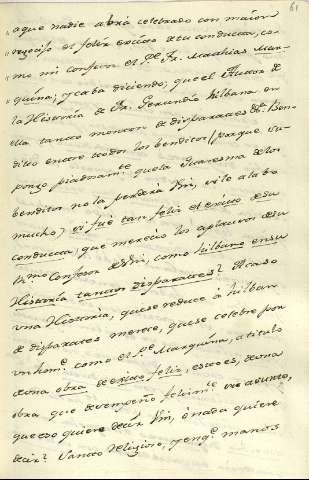 61
"aque nadie abrá celebrado con maior
"regocijo el feliz exito de su conducta, co-
"mo mi confesor el Pe. Fr. Mathias Mar-
"quina; y acaba diciendo; que el Autor de
la Historia de Fr. Gerundio hilbana en
ella tantos monton de disparates Dn. Ben-
dito entre todos los benditos / porque su-
pongo piadosamte. que la Quaresma de los
benditos no la perderá Vm, ni le alabo
mucho) si fué tan feliz el exito de su
conducta, que mereció los aplausos de su
Rmo Confesor de Vm, como hilbano en su
Historia tantos disparates? Acaso
vna Historia, que se reduce à hilban
de disparates merece, que se celebre por
vn home. como el Pe. Marquina, a titulo
de vna obra de exito feliz, esto es, de vna
obra que desempeño felizmte. su asunto,
que eso quiere decir Vm, ò nada quiere
decir? Santo Religioso, y enge. manos